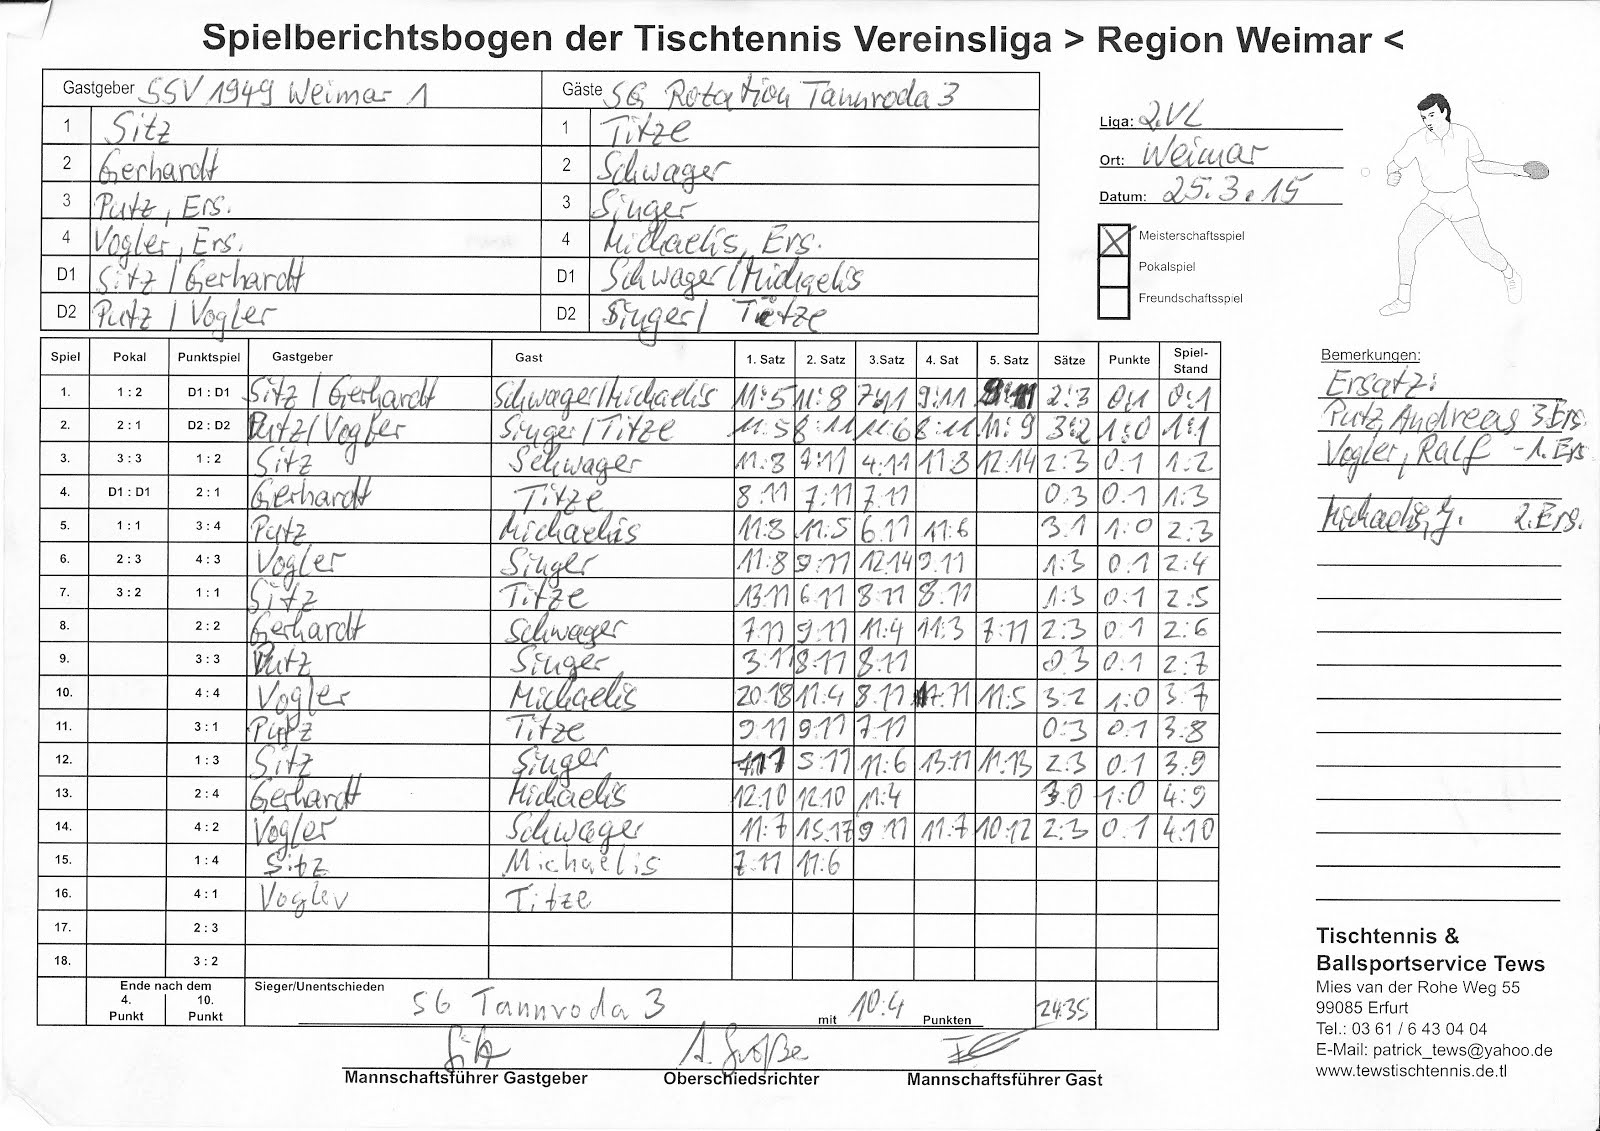 Spielberichtsbogen der Tischtennis Vereinsliga > Region Weimar <
Gastgeber SSV 1949 Weimar 1 Gäste SG Rotation Tannroda 3
1 Sitz 1 Titze
2 Gerhardt 2 Schwager
3 Putz, Ers. 3 Singer
4 Vogler, Ers. 4 Michaelis, Ers.
D1 Sitz / Gerhardt D1 Schwager/Michaelis
D2 Putz / Vogler D2 Singer/ Titze
Liga: 2.VL
Ort: Weimar
Datum: 25.3.15
Meisterschaftsspiel
Pokalspiel
Freundschaftsspiel
Spiel Pokal Punktspiel Gastgeber Gast 1. Satz 2. Satz 3.Satz 4. Sat 5. Satz Sätze Punkte Spiel-Stand
1. 1 : 2 D1 : D1 Sitz / Gerhardt Schwager/Michaelis 11:5 11:8 7:11 9:11 9:11 2:3 0:1 0:1
2. 2 : 1 D2 : D2 Putz/Vogler Singer/Titze 11:5 8:11 11:6 8:11 11:9 3:2 1:0 1:1
3. 3 : 3 1 : 2 Sitz Schwager 11:8 7:11 4:11 11:8 12:14 2:3 0:1 1:2
4. D1 : D1 2 : 1 Gerhardt Titze 8:11 7:11 7:11 0:3 0:1 1:3
5. 1 : 1 3 : 4 Putz Michaelis 11:8 11:5 6:11 11:6 3:1 1:0 2:3
6. 2 : 3 4 : 3 Vogler Singer 11:8 9:11 12:14 9:11 1:3 0:1 2:4
7. 3 : 2 1 : 1 Sitz Titze 13:11 6:11 8:11 8:11 1:3 0:1 2:5
8. 2 : 2 Gerhardt Schwager 7:11 9:11 11:4 11:3 7:11 2:3 0:1 2:6
9. 3 : 3 Putz Singer 3:11 8:11 8:11 0:3 0:1 2:7
10. 4 : 4 Vogler Michaelis 20:18 11:4 8:11 7:11 11:5 3:2 1:0 3:7
11. 3 : 1 Putz Titze 9:11 9:11 7:11 0:3 0:1 3:8
12. 1 : 3 Sitz Singer 5:11 11:6 13:11 11:13 2:3 0:1 3:9
13. 2 : 4 Gerhardt Michaelis 12:10 12:10 11:4 3:0 1:0 4:9
14. 4 : 2 Vogler Schwager 11:7 15:17 9:11 11:7 10:12 2:3 0:1 4:10
15. 1 : 4 Sitz Michaelis 7:11 11:6
16. 4 : 1 Vogler Titze
17. 2 : 3
18. 3 : 2
Ende nach dem
4. Punkt 10. Punkt
Sieger/Unentschieden SG Tannroda 3 mit 10:4 Punkten 24:35
Sitz A. Große
Mannschaftsführer Gastgeber Oberschiedsrichter Mannschaftsführer Gast
Bemerkungen:
Ersatz:
Putz, Andreas 3.Ers.
Vogler, Ralf - 1. Ers
Michaelis, J. 2.Ers.
Tischtennis &
Ballsportservice Tews
Mies van der Rohe Weg 55
99085 Erfurt
Tel.: 03 61 / 6 43 04 04
E-Mail: patrick_tews@yahoo.de
www.tewstischtennis.de.tl